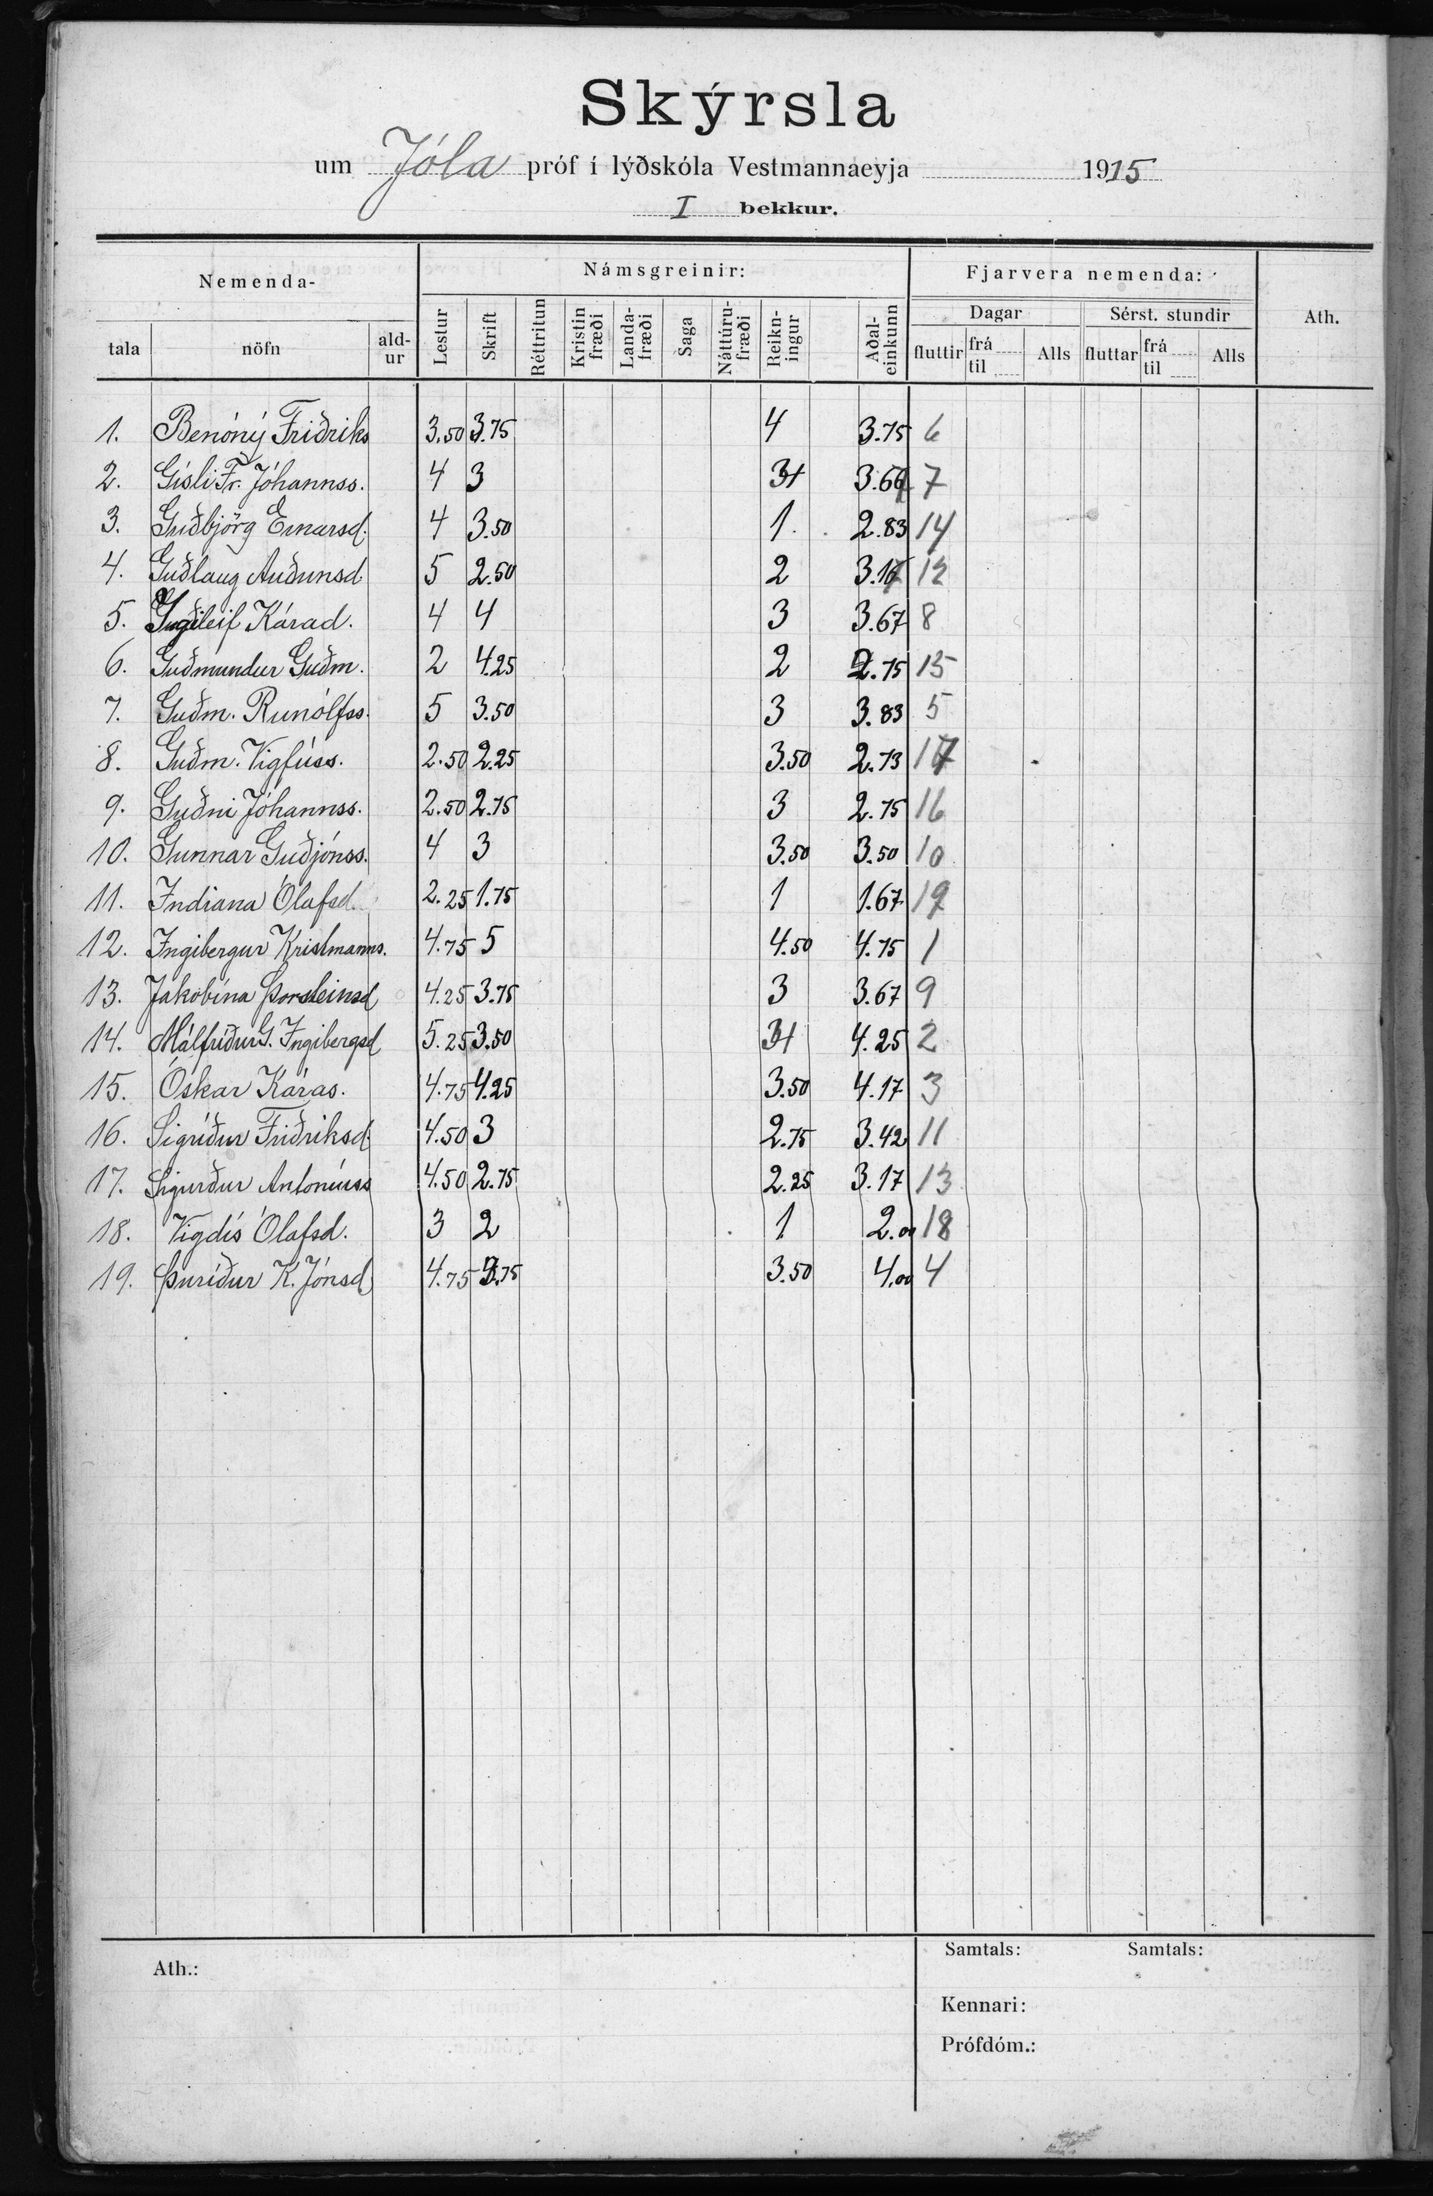 Skýrsla
um Jóla próf í lýðskóla Vestmannaeyja 1915
I bekkur.
Nemenda- Námsgreinir: Fjarvera nemenda: Ath.
Dagar Sérst. stundir
tala nöfn ald-ur Lestur Skrift Réttritun Kristin fræði Landa-fræði Saga Náttúru-fræði Reikn-ingur Aðal-einkunn fluttir frá til Alls fluttar frá til Alls
1. Benóný Friðriks 3.50 3.75 4 3.75 6
2. Gísli Fr. Jóhannss. 4 3 4 3.67 7
3. Guðbjörg Einarsd. 4 3.50 1 2.83 14
4. Guðlaug Auðunsd 5 2.50 2 3.17 12
5. Guðleif Kárad. 4 4 3 3.67 8
6. Guðmundur Guðm. 2 4.25 2 2.75 15
7. Guðm. Runólfss. 5 3.50 3 3.83 5
8. Guðm. Vigfúss. 2.50 2.25 3.50 2.73 17
9. Guðni Jóhannss. 2.50 2.75 3 2.75 16
10. Gunnar Guðjónss. 4 3 3.50 3.50 10
11. Indiana Ólafsd. 2.25 1.75 1 1.67 19
12. Ingibergur Kristmanns. 4.75 5 4.50 4.75 1
13. Jakobína Þorsteinsd 4.25 3.75 3 3.67 9
14. Málfríður G. Ingibergsd 5.25 3.50 4 4.25 2
15. Óskar Káras. 4.75 4.25 3.50 4.17 3
16. Sigríður Friðriksd. 4.50 3 2.75 3.42 11
17. Sigurður Antoníuss 4.50 2.75 2.25 3.17 13
18. Vigdís Ólafsd. 3 2 1 2.00 18
19. Þuríður K. Jónsd 4.75 3.75 3.50 4.00 4
Ath.: Samtals: Samtals:
Kennari:
Prófdóm.: